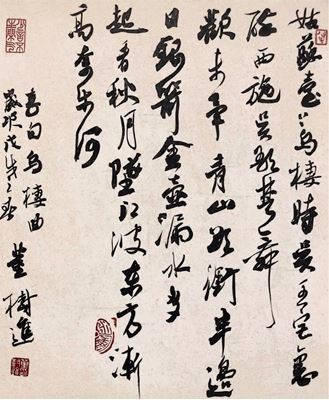 姑蘇臺上烏棲時吳王宮裏
醉西施吳歌楚舞
歡未畢青山欲銜半邊
日銀箭金壺漏水多
起看秋月墜江波東方漸
高奈樂何
李白烏棲曲
歲次戊戌之春
董樹進